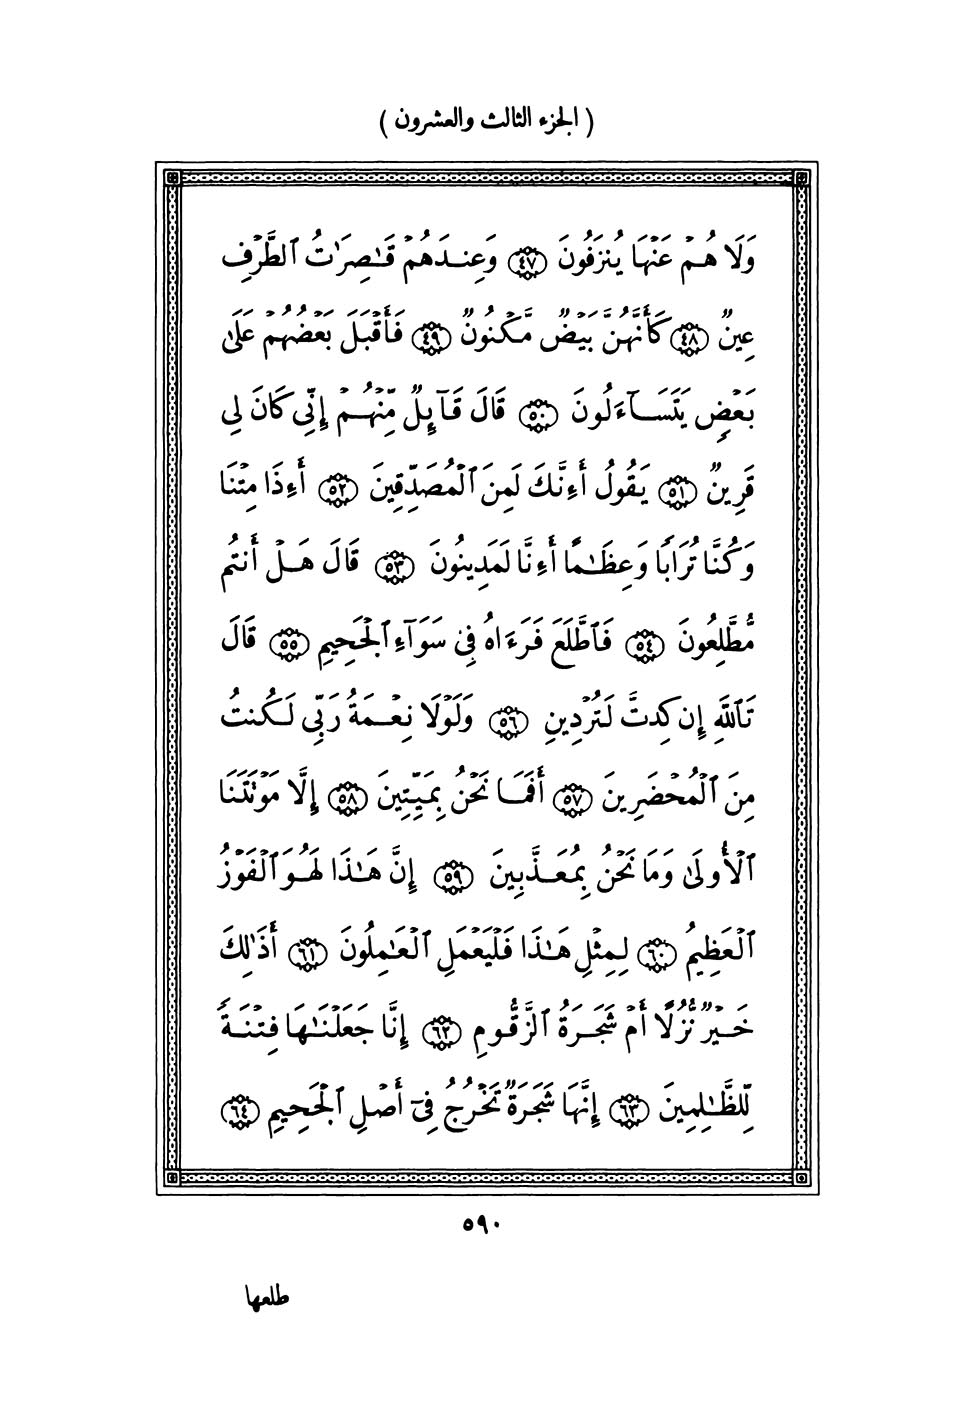 ( الجزء الثالث والعشرون )
وَلَا هُمْ عَنْهَا يُنزَفُونَ ٤٧ وَعِندَهُمْ قَٰصِرَٰتُ ٱلطَّرْفِ
عِينٌ ٤٨ كَأَنَّهُنَّ بَيْضٌ مَّكْنُونٌ ٤٩ فَأَقْبَلَ بَعْضُهُمْ عَلَىٰ
بَعْضٍ يَتَسَآءَلُونَ ٥٠ قَالَ قَآئِلٌ مِّنْهُمْ إِنِّى كَانَ لِى
قَرِينٌ ٥١ يَقُولُ أَءِنَّكَ لَمِنَ ٱلْمُصَدِّقِينَ ٥٢ أَءِذَا مِتْنَا
وَكُنَّا تُرَابًا وَعِظَٰمًا أَءِنَّا لَمَدِينُونَ ٥٣ قَالَ هَلْ أَنتُم
مُّطَّلِعُونَ ٥٤ فَٱطَّلَعَ فَرَءَاهُ فِى سَوَآءِ ٱلْجَحِيمِ ٥٥ قَالَ
تَٱللَّهِ إِن كِدتَّ لَتُرْدِينِ ٥٦ وَلَوْلَا نِعْمَةُ رَبِّى لَكُنتُ
مِنَ ٱلْمُحْضَرِينَ ٥٧ أَفَمَا نَحْنُ بِمَيِّتِينَ ٥٨ إِلَّا مَوْتَتَنَا
ٱلْأُولَىٰ وَمَا نَحْنُ بِمُعَذَّبِينَ ٥٩ إِنَّ هَٰذَا لَهُوَ ٱلْفَوْزُ
ٱلْعَظِيمُ ٦٠ لِمِثْلِ هَٰذَا فَلْيَعْمَلِ ٱلْعَٰمِلُونَ ٦١ أَذَٰلِكَ
خَيْرٌ نُّزُلًا أَمْ شَجَرَةُ ٱلزَّقُّومِ ٦٢ إِنَّا جَعَلْنَٰهَا فِتْنَةً
لِّلظَّٰلِمِينَ ٦٣ إِنَّهَا شَجَرَةٌ تَخْرُجُ فِىٓ أَصْلِ ٱلْجَحِيمِ ٦٤
٥٩٠
طلعها